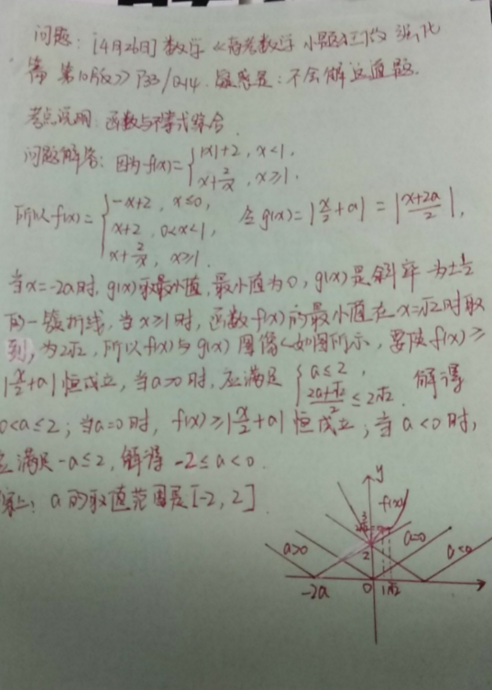 问题:[4月26日]数学《高考数学 小题狂做 强化
篇 第10版》P33/Q14.疑惑是:不会解这道题.
考点说明:函数与不等式综合.
问题解答:因为f(x)={|x|+2, x<1, x+2/x, x≥1,
所以f(x)={-x+2, x≤0, x+2, 0<x<1, x+2/x, x≥1. 令g(x)=|x/2+a|=|(x+2a)/2|,
当x=-2a时,g(x)取最小值,最小值为0,g(x)是斜率为±1/2
的一簇折线,当x≥1时,函数f(x)的最小值在x=√2时取
到,为2√2,所以f(x)与g(x)图像如图所示,要使f(x)≥
|x/2+a|恒成立,当a>0时,应满足{a≤2, (2a+√2)/2≤2√2. 解得
0<a≤2;当a=0时,f(x)≥|x/2+a|恒成立;当a<0时,
应满足-a≤2,解得-2≤a<0.
综上:a的取值范围是[-2,2].
y
f(x)
3
2
a>0
a=0
a<0
-2a
0
1
√2
x